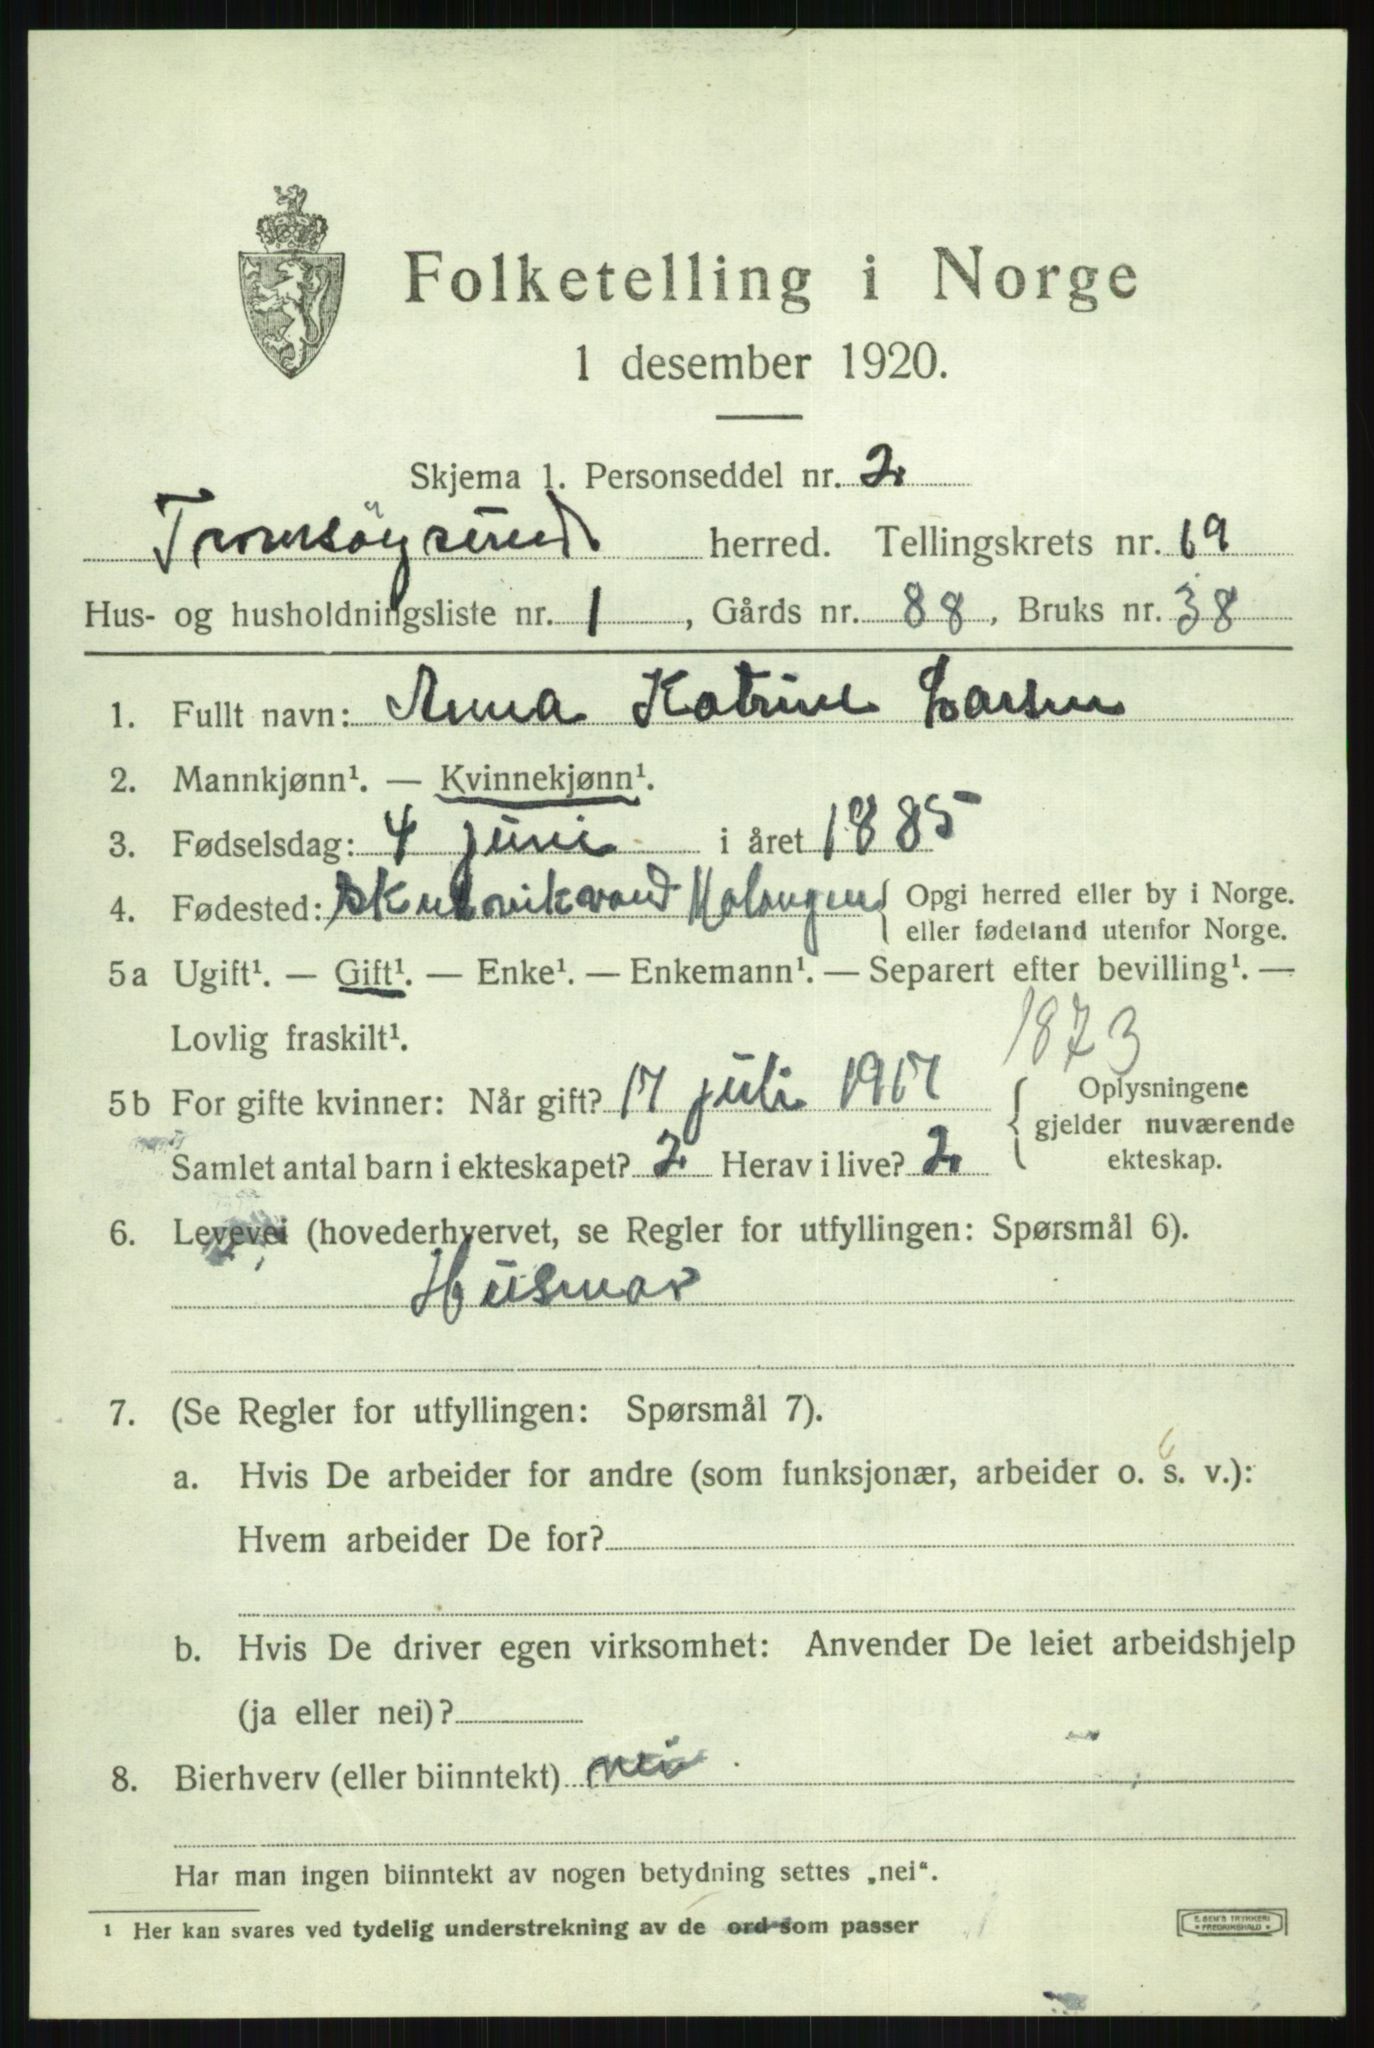 Folketelling i Norge
1 desember 1920.
Skjema 1. Personseddel nr. 2
Tromsöysund herred. Tellingskrets nr. 19
Hus- og husholdningsliste nr. 1, Gårds nr. 88, Bruks nr. 38
1. Fullt navn: Anna Katrine Larsen
2. Mannkjønn¹. — Kvinnekjønn¹.
3. Fødselsdag: 4 juni i året 1885
4. Fødested: Malangen { Opgi herred eller by i Norge.
eller fødeland utenfor Norge.
5a Ugift¹. — Gift¹. — Enke¹. — Enkemann¹. — Separert efter bevilling¹. —
Lovlig fraskilt¹.
1873
5b For gifte kvinner: Når gift? 17 juli 1917 { Oplysningene
gjelder nuværende
Samlet antal barn i ekteskapet? 2 Herav i live? 2 ekteskap.
6. Levevei (hovederhvervet, se Regler for utfyllingen: Spørsmål 6).
Husmor
7. (Se Regler for utfyllingen: Spørsmål 7).
6
a. Hvis De arbeider for andre (som funksjonær, arbeider o. s. v.):
Hvem arbeider De for?
b. Hvis De driver egen virksomhet: Anvender De leiet arbeidshjelp
(ja eller nei)?
8. Bierhverv (eller biinntekt) nei
Har man ingen biinntekt av nogen betydning settes „nei“.
¹ Her kan svares ved tydelig understrekning av de ord som passer
E. SEM'S TRYKKERI
FREDRIKSHALD